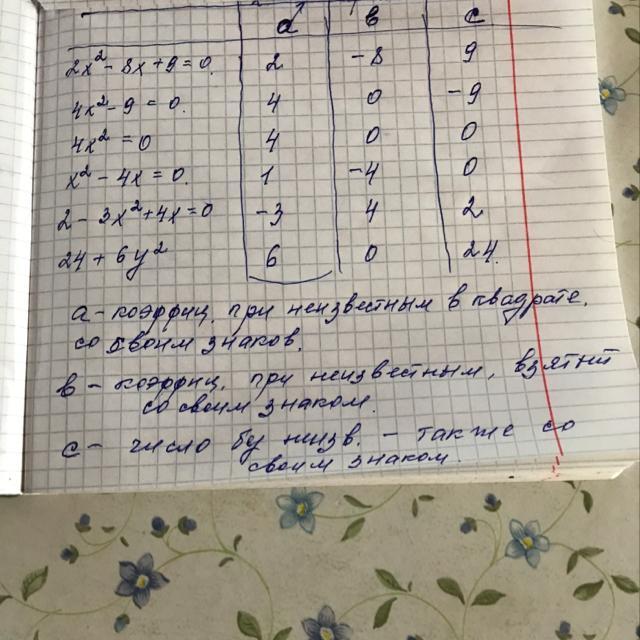 a в c
2x² - 8x + 9 = 0. 2 -8 9
4x² - 9 = 0. 4 0 -9
4x² = 0 4 0 0
x² - 4x = 0. 1 -4 0
2 - 3x² + 4x = 0 -3 4 2
24 + 6y² 6 0 24.
a - коэффиц. при неизвестным в квадрате,
со своим знаков.
в - коэффиц. при неизвестным, взятый
со своим знаком.
c - число бу неизв. - также со
своим знаком.